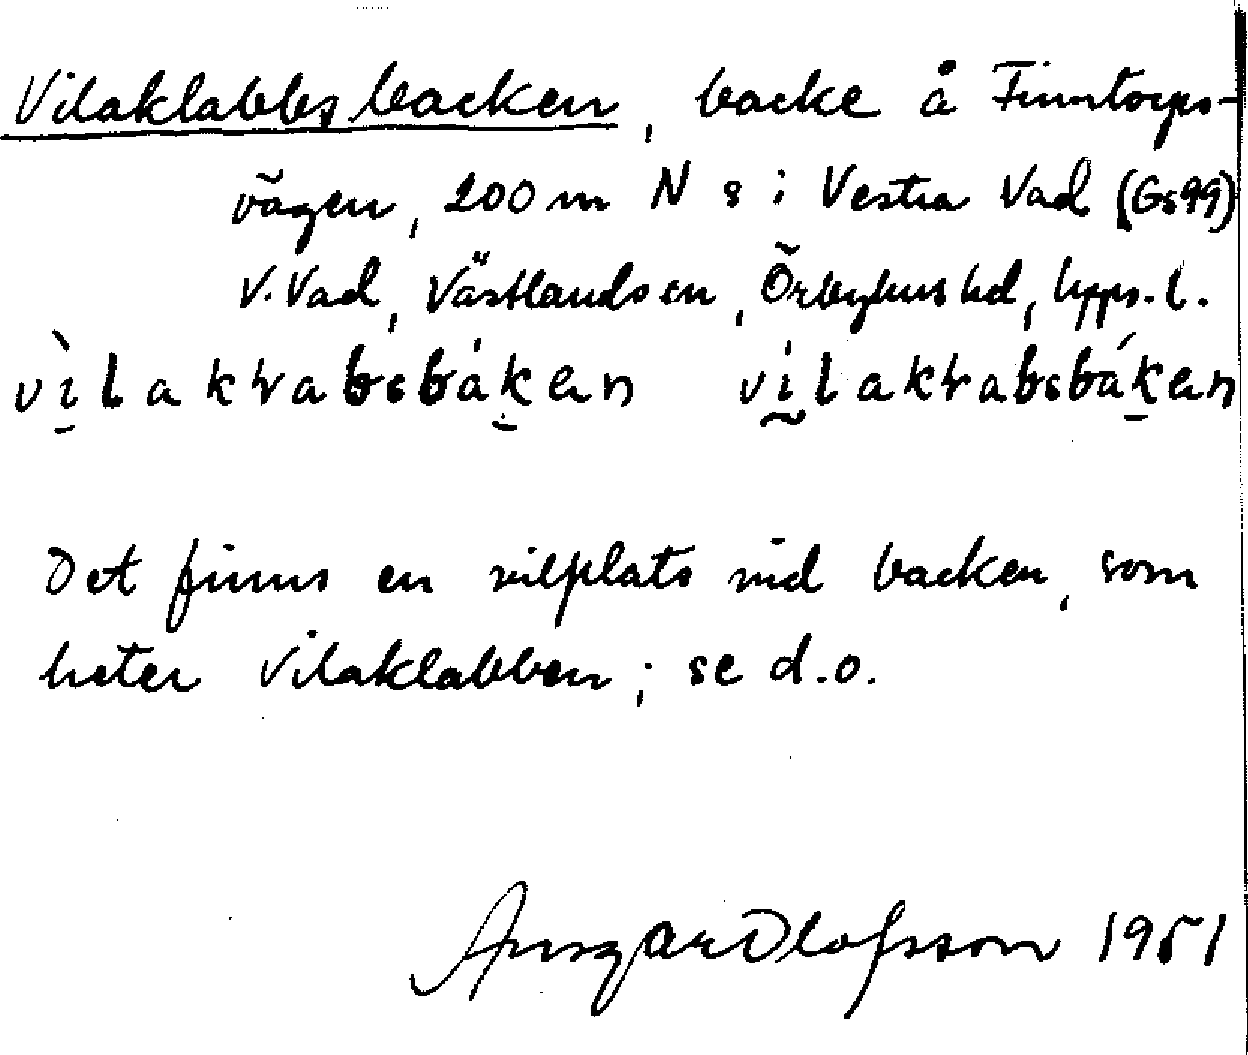 Vilaklabbsbacken, backe å Finntorps-
vägen, 200 m N s i Vestra Vad (Gs99)
V. Vad, Västlands sn, Örbyhus hd, Upps. l.
vìlakrabsbák̠en vílakrabsbák̠en
Det finns en vilplats vid backen, som
heter Vilaklabben; se d.o.
Ansgar Olofsson 1951